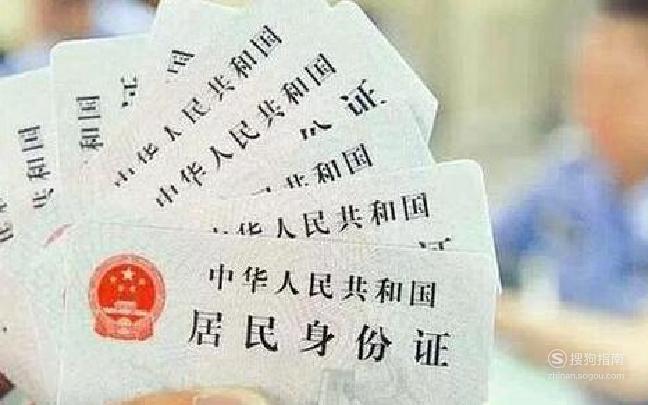 和国
民共和国
证
中华人民共和国
中华人民共和国
证
共和国
中华人民共和国
证
中华人民共和国
居民身份证
搜狗指南
zhinan.sogou.com